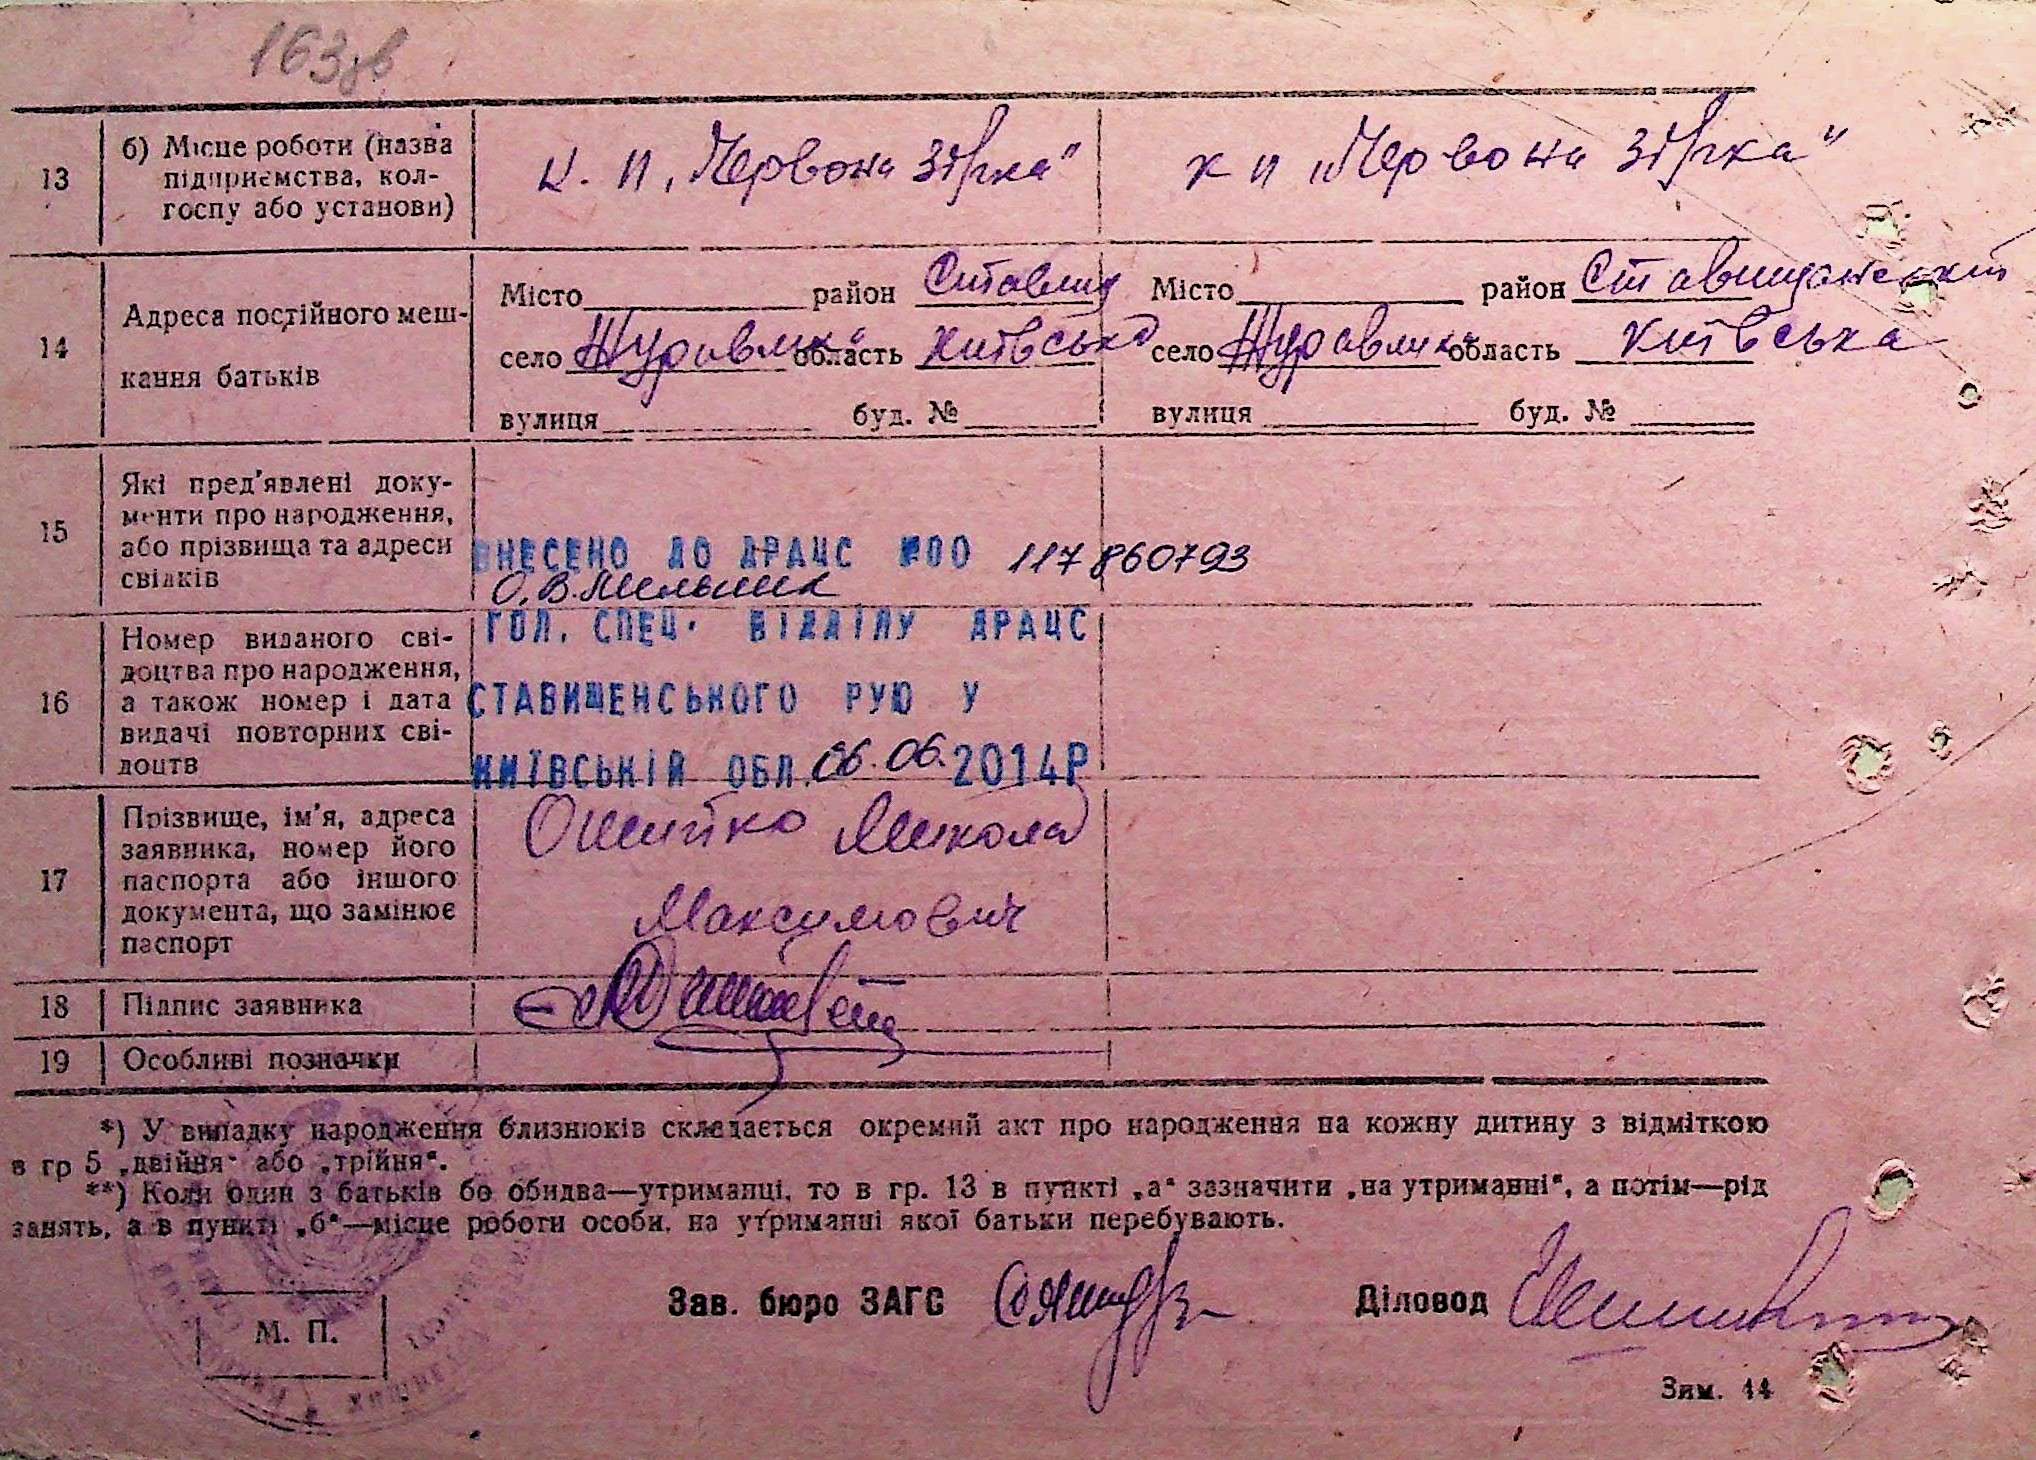 163зв
13
б) Місце роботи (назва
підприємства, кол-
госпу або установи)
к. п. „Червона зірка"
к п „Червона зірка"
14
Адреса постійного меш-
кання батьків
Місто район Ставищ
село Журавлиха область Київська
вулиця буд. №
Місто район Ставищанський
село Журавлиха область Київська
вулиця буд. №
15
Які пред'явлені доку-
менти про народження,
або прізвища та адреси
свідків
ВНЕСЕНО ДО ДРАЦС №00 117860793
О.В.Мельник
16
Номер виданого сві-
доцтва про народження,
а також номер і дата
видачі повторних сві-
доцтв
ГОЛ. СПЕЦ. ВІДДІЛУ ДРАЦС
СТАВИЩЕНСЬКОГО РУЮ У
КИЇВСЬКІЙ ОБЛ. 06.06.2014Р
17
Прізвище, ім'я, адреса
заявника, номер його
паспорта або іншого
документа, що замінює
паспорт
Ошийко Микола
Максимович
18
Підпис заявника
19
Особливі позначки
*) У випадку народження близнюків складається окремий акт про народження на кожну дитину з відміткою
в гр 5 „двійня" або „трійня".
**) Коли один з батьків бо обидва—утриманці, то в гр. 13 в пункті „а" зазначити „на утриманні", а потім—рід
занять, а в пункті „б"—місце роботи особи, на утриманні якої батьки перебувають.
М. П.
Зав. бюро ЗАГС
Діловод
Зям. 44